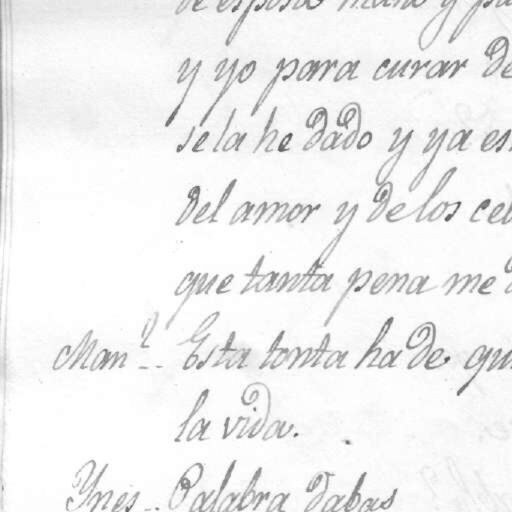 de esposa mano y
y yo para curar de
se la he dado y ya
del amor y de los
que tanta pena me
Man.l -- Esta tonta ha de
la vida.
Ynes -- Palabra dabas